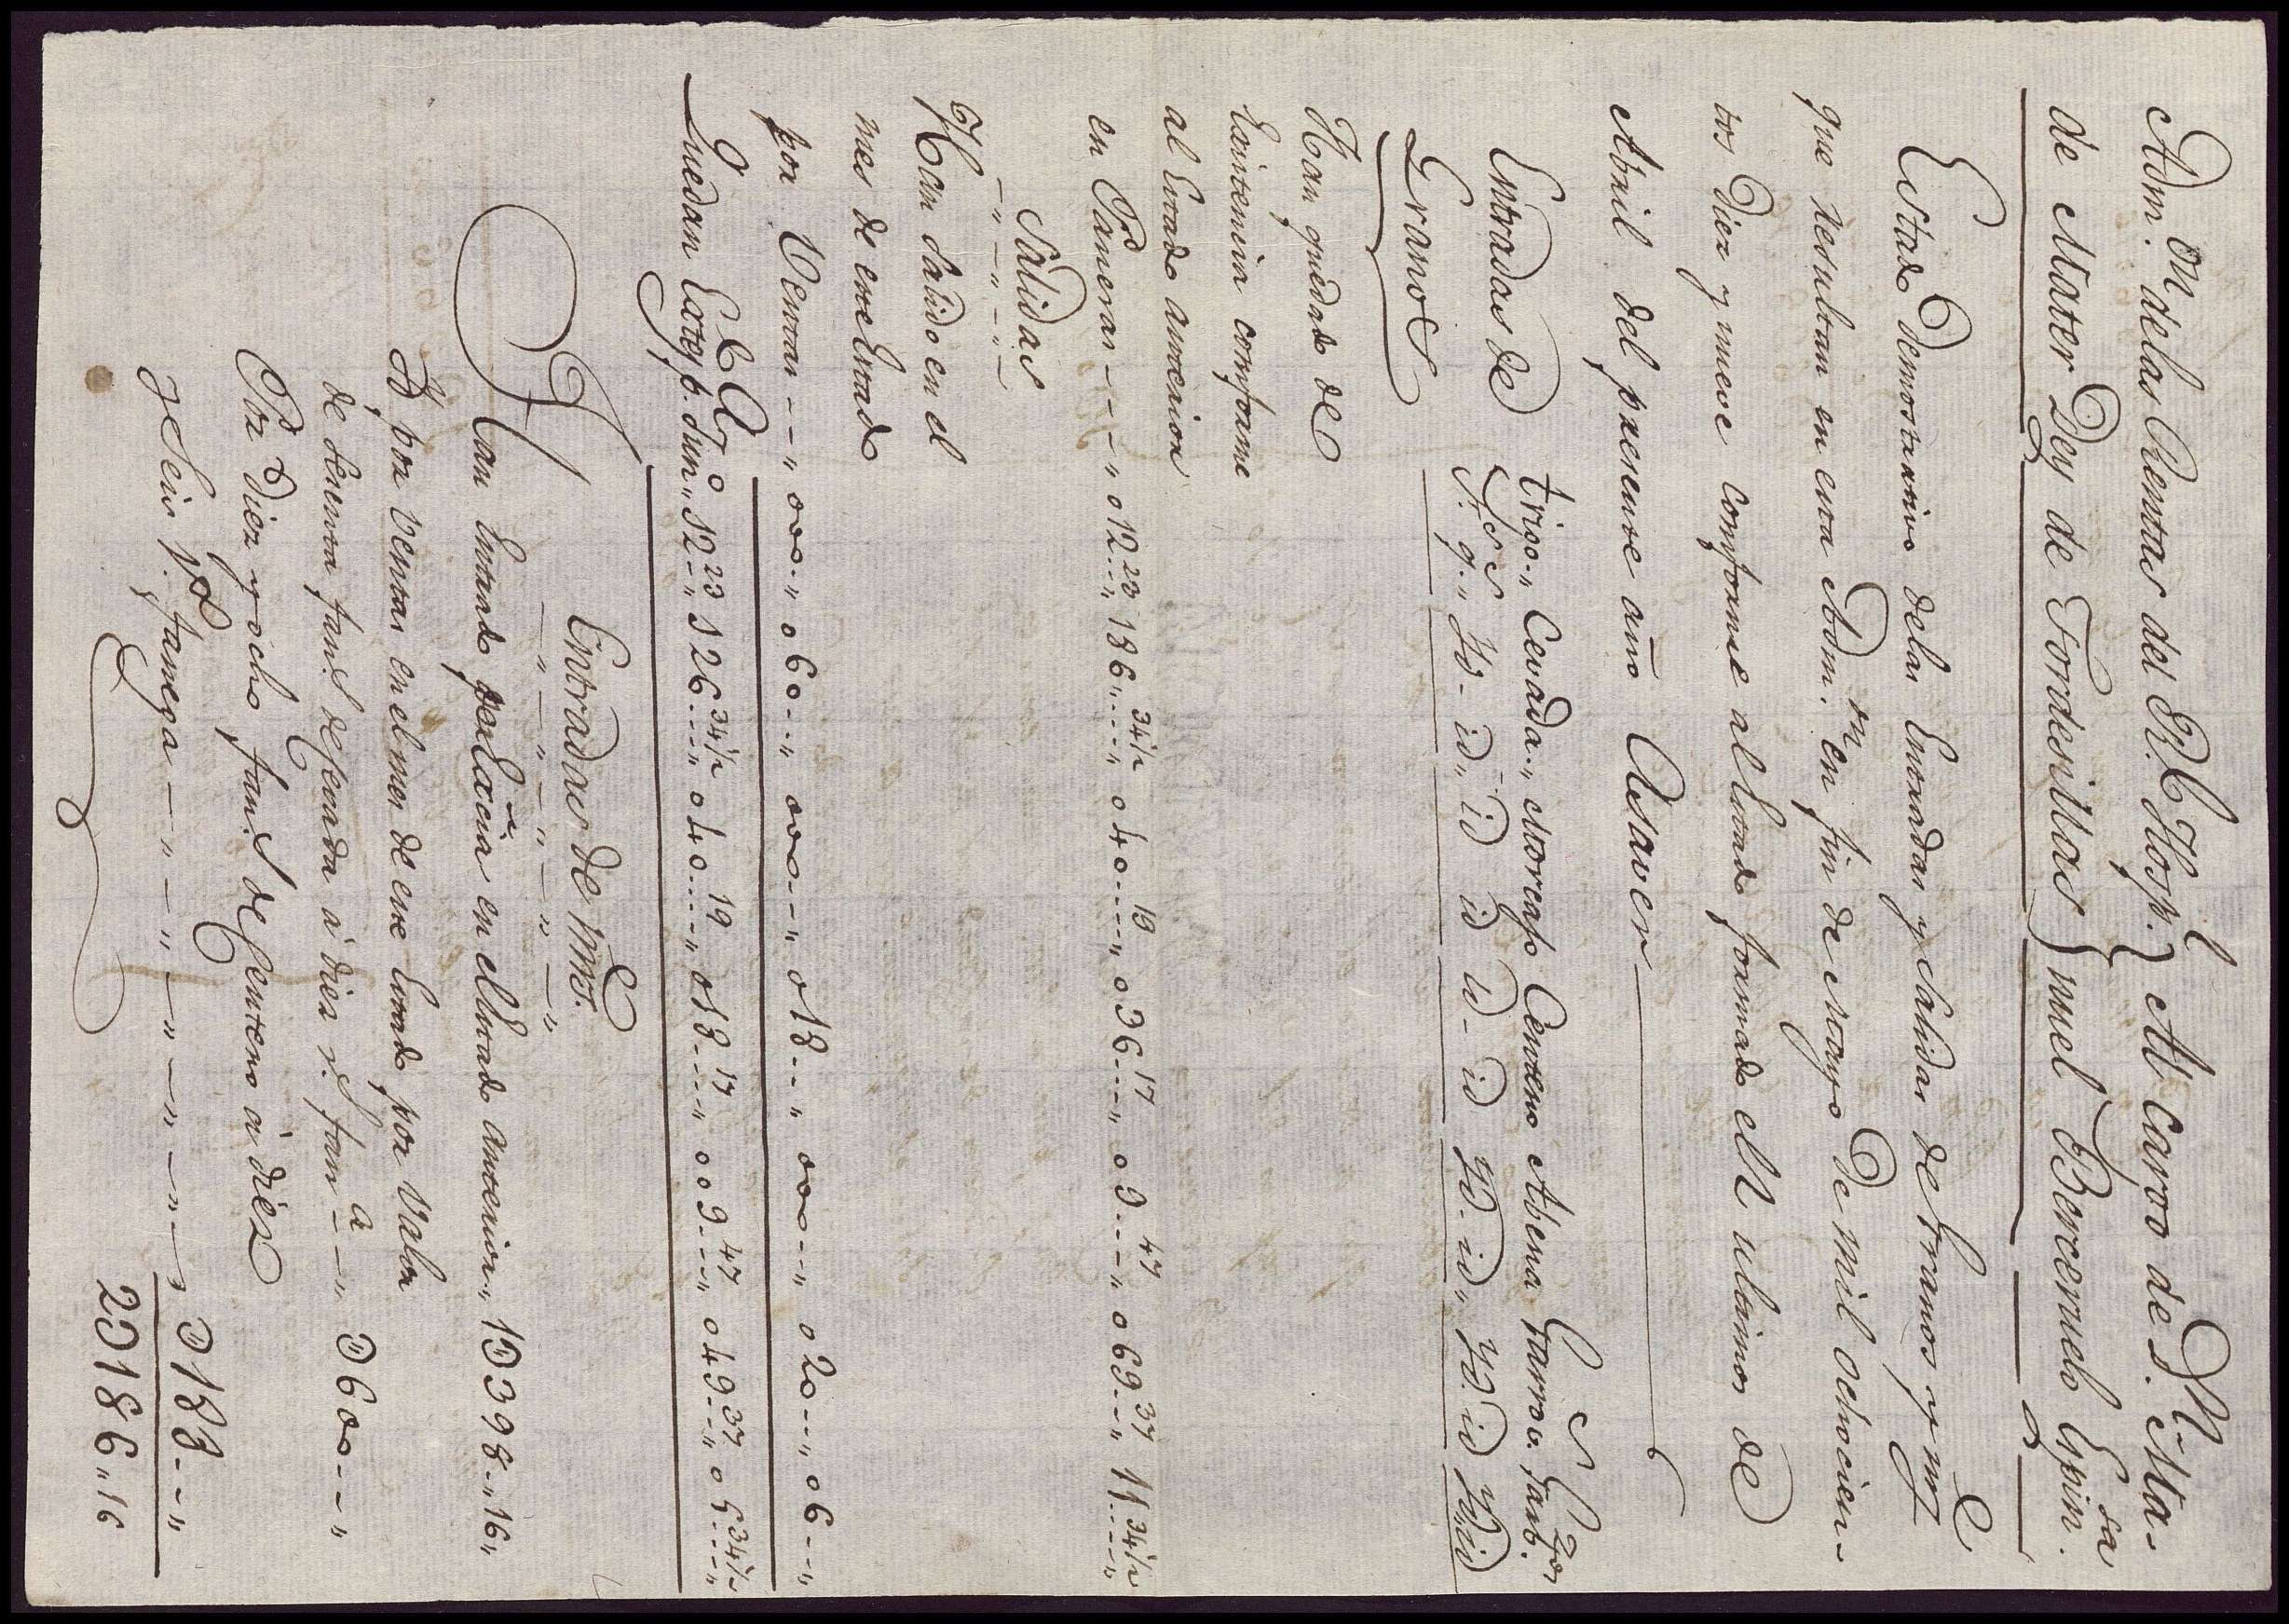 Adm.on delas Rentas del R.l Hosp.l } Al cargo de D.n Ma-
de Mater Dey de Tordesillas } nuel Barcenuelo Espin.sa
Estado Demostrativo delas Entradas y Salidas de Granos y mrs
que resultan en esta Adm.on en fin de Mayo De mil ochocien-
tos Diez y nueve conforme al Estado formado el ultimos de
Abril del presente año Asaver
Entradas de trigo.,, Cevada.,, Morcajo Centeno Abena Garrovs. Garb.zos
Granos f.s q.s,, Yd.- id,, id id id - id Yd. id,, Yd. id Yd. id
Han quedado de
Existencia conforme
al Estado anterior
en Paneras - - - ,, 012 23 ,, 186 34 1/2 ,, 040 19 ,, 036 17 ,, 09 47 ,, 069 37 ,, 11 34 1/2 ,,
Salidas
Han Salido en el
mes de este Estado
por Ventas - - ,, 000 - ,, 060 - ,, 000 - - ,, 018 - - ,, 000 - - ,, 020 - - ,, 06 - - ,,
Quedan Ext.s p.a Jun.o ,, 12 23 ,, 126 34 1/2 ,, 040 19 ,, 018 17 ,, 009 47 ,, 049 37 ,, 05 34 1/2 ,,
Entradas de mrs.
Han Entrado por Exia en el Estado anterior ,, 1D398 - ,, 16 ,,
Yd por Ventas en el mes de este Estado por Valor
de sesenta fan.s de Cevada à diez r.s fan.a - - ,, D600 - - ,,
Por Diez y ocho fan.s de Centeno à diez
y seis r.s fanega - - ,, - - ,, - - ,, - - ,, D188 - - ,,
2D186 ,, 16